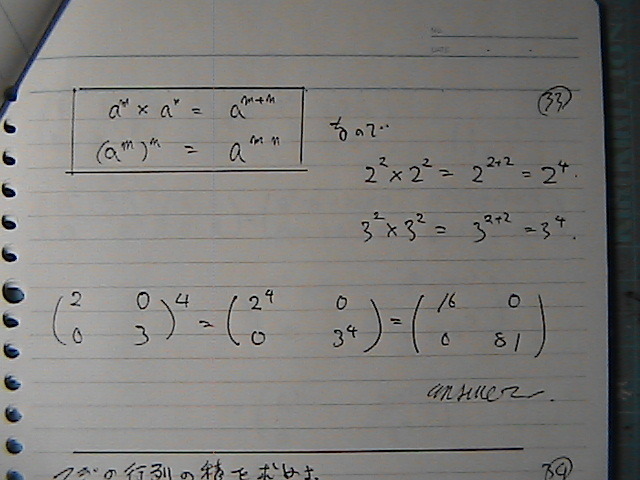 NO.
DATE
㉝
a^m × a^n = a^{m+n}
(a^m)^n = a^{mn}
なので
2^2 × 2^2 = 2^{2+2} = 2^4.
3^2 × 3^2 = 3^{2+2} = 3^4.
(2 0
0 3)^4 = (2^4 0
0 3^4) = (16 0
0 81)
answer
つぎの行列の積を求めよ
㉞